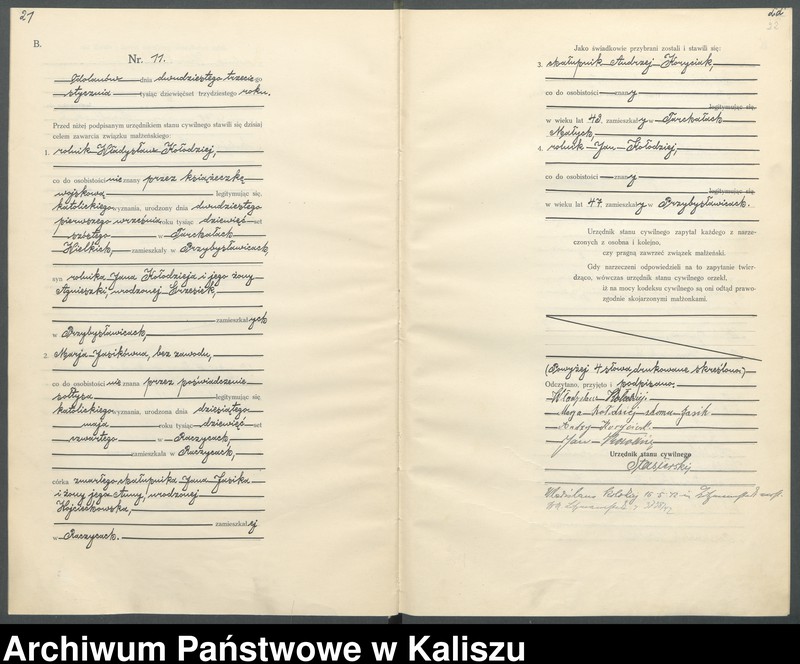 21
B.
Nr. 11.
Odolanów dnia dwudziestego trzeciego
stycznia tysiąc dziewięćset trzydziestego roku.
Przed niżej podpisanym urzędnikiem stanu cywilnego stawili się dzisiaj
celem zawarcia związku małżeńskiego:
1. rolnik Władysław Kołodziej,
co do osobistości nie znany przez książeczkę
wojskową legitymując się,
katolickiego wyznania, urodzony dnia dwudziestego
pierwszego września roku tysiąc dziewięć set
szóstego w Tarchałach
Wielkich, zamieszkały w Przybysławicach,
syn rolnika Jana Kołodzieja i jego żony
Agnieszki, urodzonej
zamieszkałych
w Przybysławicach,
2. Marja Jasikówna, bez zawodu,
co do osobistości nie znana przez poświadczenie
sołtysa legitymując się,
katolickiego wyznania, urodzona dnia dziesiątego
maja roku tysiąc dziewięć set
czwartego w Raczycach,
zamieszkała w Raczycach,
córka zmarłego chałupnika Jana Jasika
i żony jego Anny, urodzonej
Wojciechowska,
zamieszkałej
w Raczycach.
22
Jako świadkowie przybrani zostali i stawili się:
3. chałupnik Andrzej Koryciak,
co do osobistości znany
legitymując się
w wieku lat 43, zamieszkały w Tarchałach
Małych,
4. rolnik Jan Kołodziej,
co do osobistości znany
legitymując się
w wieku lat 47, zamieszkały w Przybysławicach.
Urzędnik stanu cywilnego zapytał każdego z narze-
czonych z osobna i kolejno,
czy pragną zawrzeć związek małżeński.
Gdy narzeczeni odpowiedzieli na to zapytanie twier-
dząco, wówczas urzędnik stanu cywilnego orzekł,
iż na mocy kodeksu cywilnego są oni odtąd prawo-
zgodnie skojarzonymi małżonkami.
(Powyżej 4 słowa drukowane skreślono.)
Odczytano, przyjęto i podpisano:
Władysław Kołodziej
Marja Kołodziej z domu Jasik
Andrzej Koryciak
Jan Kołodziej
Urzędnik stanu cywilnego
Archiwum Państwowe w Kaliszu